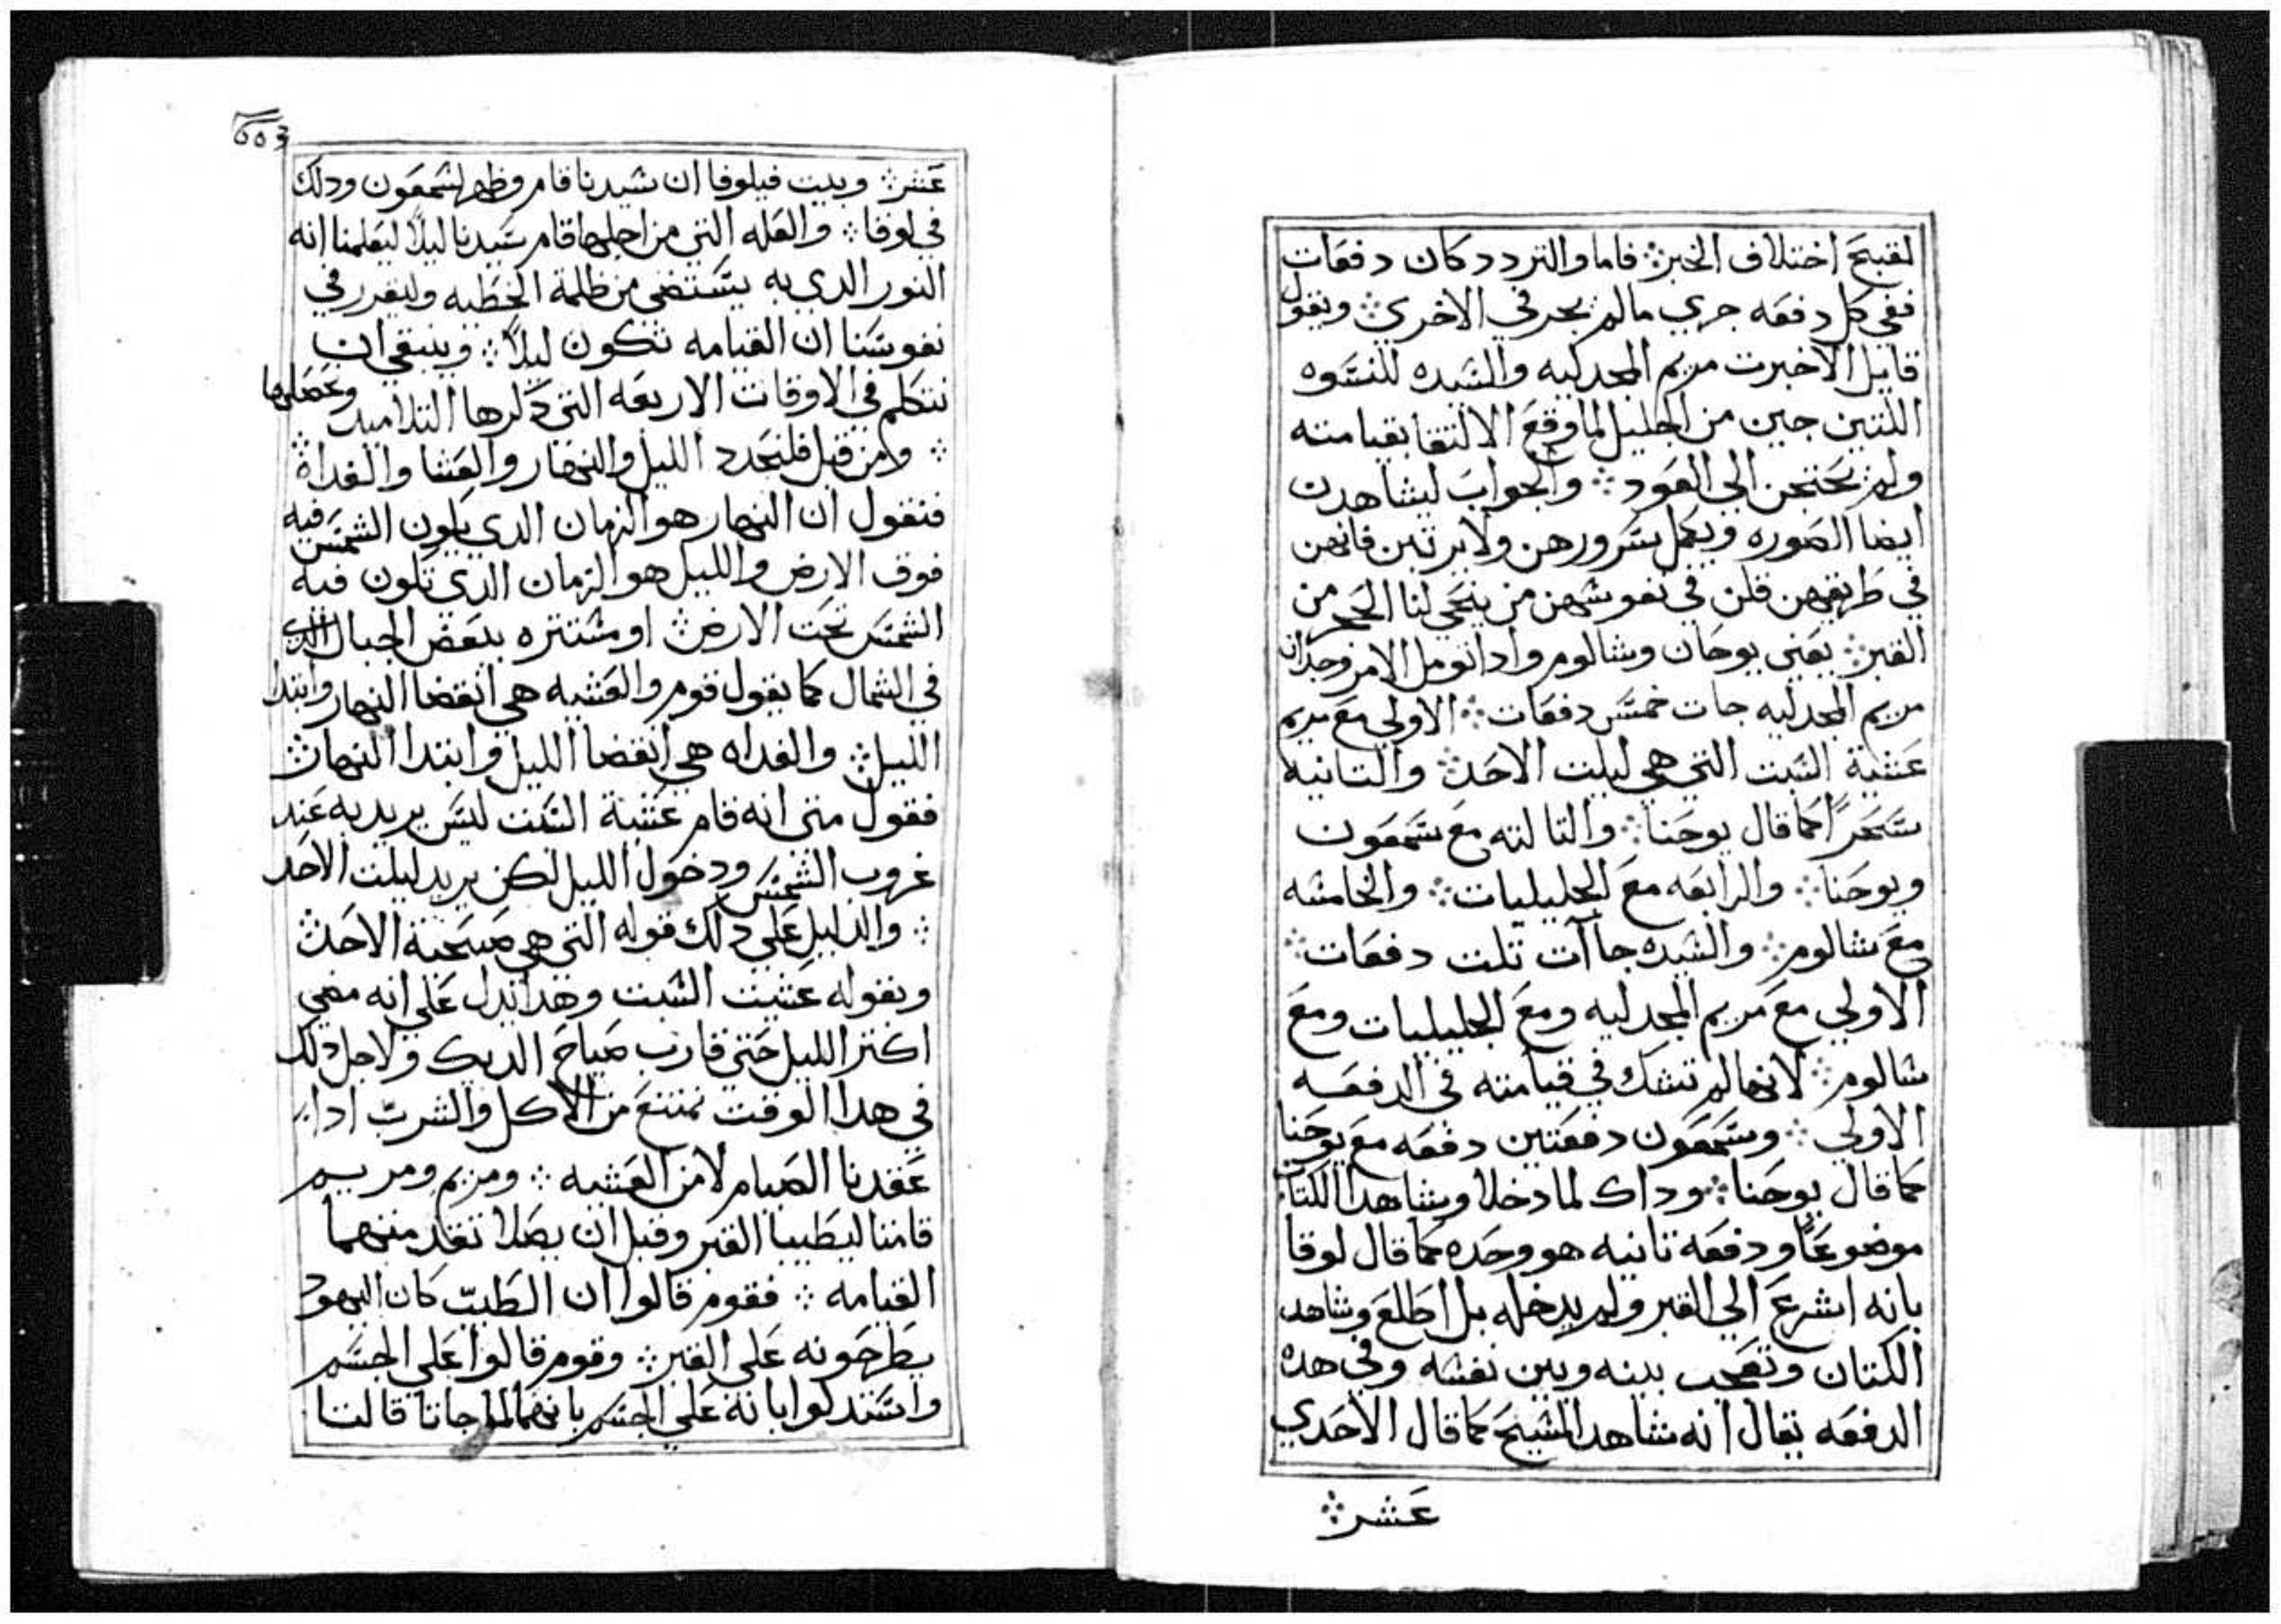 لقبح اختلاف الخبر؛ فاما والتردد كان دفعات
ففي كل دفعه جري مالم يجر في الاخري؛ ونقول
قايل الا اخبرت مريم المجدليه والسيده للنسوه
اللتين جين من الجليل لما وقع الالتقا بقيامته
ولم يحتجن الي العود؛ والجواب ليشاهدن
ايضا الصوره ويكمل سرورهن ولا يرتبن فانهن
في طريقهن قلن في نفوسهن من ينحي لنا الحجر من
القبر؛ يعني يوحان وشالوم وادا تومل الامر وجد ان
مريم المجدليه جات خمس دفعات؛ الاولي مع مريم
عشية السبت التي هي ليلت الاحد؛ والتانيه
سحرًا كما قال يوحنا؛ والتالته مع شمعون
ويوحنا؛ والرابعه مع الجليليات؛ والخامسه
مع شالوم؛ والسيده جاآت تلت دفعات؛
الاولي مع مريم المجدليه ومع الجليليات ومع
شالوم؛ لانها لم تشك في قيامته في الدفعه
الاولي؛ وشمعون دفعتين دفعه مع يوحنا
كما قال يوحنا؛ وداك لما دخلا وشاهدا الكتان
موضوعًا ودفعه تانيه هو وحده كما قال لوقا
بانه اسرع الي القبر ولم يدخله بل اطلع وشاهد
الكتان وتعجب بينه وبين نفسه وفي هده
الدفعه يقال انه شاهد المسيح كما قال الاحدي
عشر؛
603
عشر؛ وبيت فيلوفا ان سيدنا قام وظهر لشمعون ودلك
في لوقا؛ والعله التي من اجلها قام سيدنا ليلًا ليعلمنا انه
النور الدي به يستضي من ظلمة الخطيه وليقرر في
نفوسنا ان القيامه تكون ليلًا؛ وينبغي ان
نتكلم في الاوقات الاربعه التي دكرها التلاميد
؛ ومن قبل فلنحدد الليل والنهار والعشا والغداة؛
فنقول ان النهار هو الزمان الدي يكون الشمس فيه
فوق الارض والليل هو الزمان الدي تكون فيه
الشمس تحت الارض؛ او مستتره ببعض الجبال التي
في الشمال كما يقول قوم والعشيه هي انقضا النهار وابتدا
الليل؛ والغداه هي انقضا الليل وابتدا النهار؛
فقول متي انه قام عشية السبت ليس يريد به عند
غروب الشمس ودخول الليل لكن يريد ليلت الاحد
؛ والدليل علي دلك قوله التي هي صبيحة الاحد؛
وبقوله عشيت السبت وهدا يدل علي انه مضي
اكتر الليل حتي قارب صياح الديك ولاجل دلك
في هدا الوقت نمتنع من الاكل والشرب ادا
عقدنا الصيام لا من العشيه؛ ومريم ومريم
قامتا ليطيبا القبر وقبل ان يصلا تقدمتهما
القيامه؛ فقوم قالوا ان الطيب كان اليهود
يطرحونه علي القبر؛ وقوم قالوا علي الجسم
واستدلوا بانه علي الجسم بانهما لما جاتا قالتا